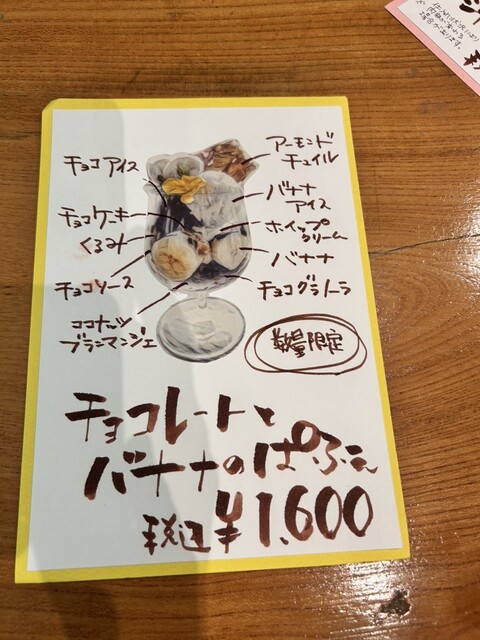 チョコアイス
チョコケーキ
くるみ
チョコソース
ココナッツ
ブランマンジェ
アーモンド
チュイル
バナナ
アイス
ホイップ
クリーム
バナナ
チョコグラノーラ
数量限定
チョコレートと
バナナのぱふぇ
税込¥1,600
場合があります。